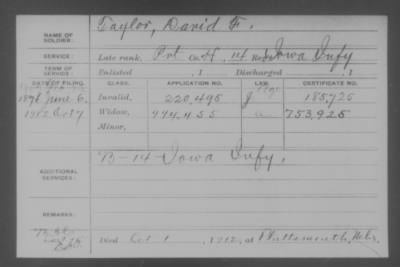 NAME OF SOLDIER: Taylor, David F.
SERVICE: Late rank, Pvt Co. H, 14 Reg Iowa Infy
TERM OF SERVICE: Enlisted , 1 Discharged , 1
DATE OF FILING. CLASS. APPLICATION NO. LAW. CERTIFICATE NO.
1876 June 6. Invalid, 220,495 185,725
1912 Oct 17 Widow, 994,455 753,925
Minor,
ADDITIONAL SERVICES: B-14-Iowa Infy.
REMARKS:
Died Oct 1, 1912, at Plattsmouth, Nebr.